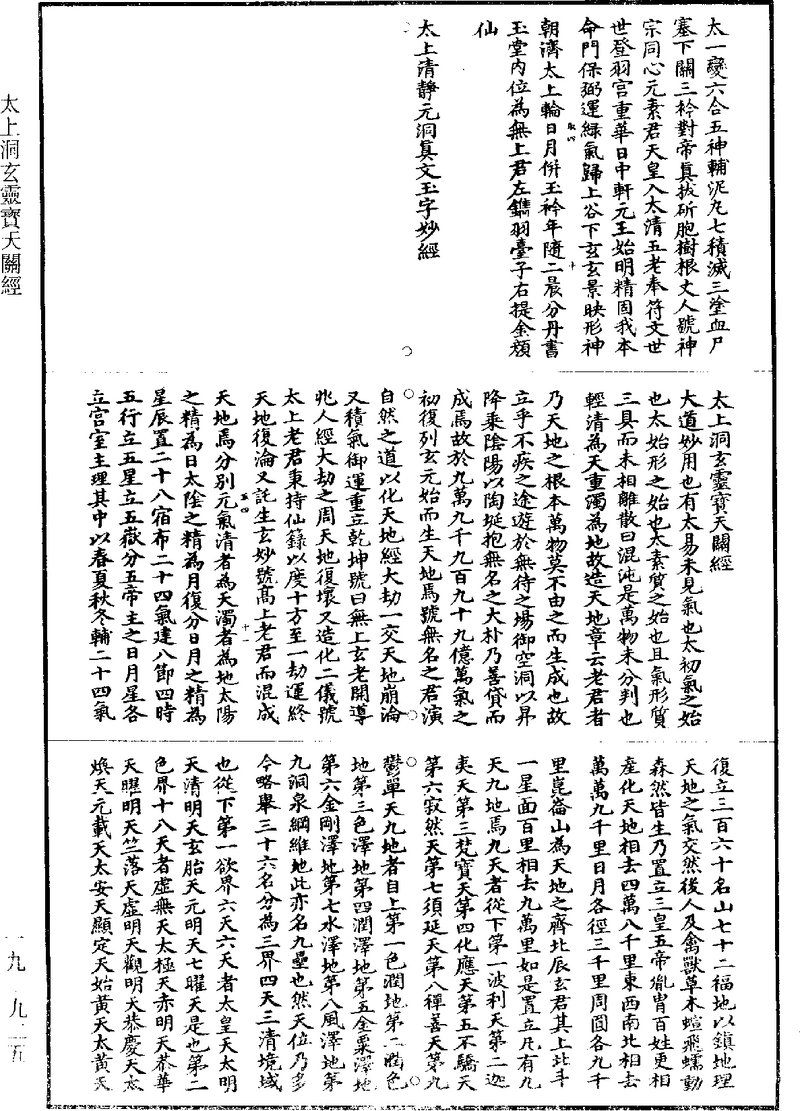 太一變六合五神輔泥丸七積滅三塗血尸
塞下關三衿對帝真拔斫胞樹根丈人號神
宗同心元素君天皇入太清五老奉符文世
世登羽宮重華日中軒元王始明精固我本
命門保弼運綠氣歸上谷下玄玄景映形神
朝濟太上輪日月併玉衿年隨二晨分丹書
玉堂內位為無上君左鐫羽臺子右提金顏
仙
太上清靜元洞真文玉字妙經
太上洞玄靈寶天關經
大道妙用也有太易未見氣也太初氣之始
也太始形之始也太素質之始也且氣形質
三具而未相離散曰混沌是萬物未分判也
輕清為天重濁為地故造天地章云老君者
乃天地之根本萬物莫不由之而生成也故
立乎不疾之途遊於無待之場御空洞以昇
降乘陰陽以陶埏抱無名之大朴乃善貸而
成焉故於九萬九千九百九十九億萬氣之
初復列玄元始而生天地焉號無名之君演
自然之道以化天地經大劫一交天地崩淪
又積氣御運重立乾坤號曰無上玄老開導
兆人經大劫之周天地復壞又造化二儀號
太上老君秉持仙籙以度十方至一劫運終
天地復淪又託生玄妙號高上老君而混成
天地焉分別元氣清者為天濁者為地太陽
之精為日太陰之精為月復分日月之精為
星辰置二十八宿布二十四氣建八節四時
五行立五星立五嶽分五帝主之日月星各
立宮室主理其中以春夏秋冬輔二十四氣
復立三百六十名山七十二福地以鎮地理
天地之氣交然後人及禽獸草木蝖飛蠕動
森然皆生乃置立三皇五帝胤胄百姓更相
產化天地相去四萬八千里東西南北相去
萬萬九千里日月各徑三千里周圓各九千
里崑崙山為天地之齊北辰玄君其上北斗
一星面百里相去九萬里如是置立凡有九
天九地焉九天者從下第一波利天第二迦
夷天第三梵寶天第四化應天第五不驕天
第六寂然天第七須延天第八禪善天第九
鬱單天九地者自上第一色潤地第二潤色
地第三色澤地第四潤澤地第五金粟澤地
第六金剛澤地第七水澤地第八風澤地第
九洞泉綱維地此亦名九壘也然天位乃多
今略舉三十六名分為三界四天三清境域
也從下第一欲界六天六天者太皇天太明
天清明天玄胎天元明天七曜天是也第二
色界十八天者虛無天太極天赤明天恭華
天曜明天竺落天虛明天觀明天恭慶天太
煥天元載天太安天顯定天始黃天太黃天
太上洞玄靈寶天關經
一九·九二五